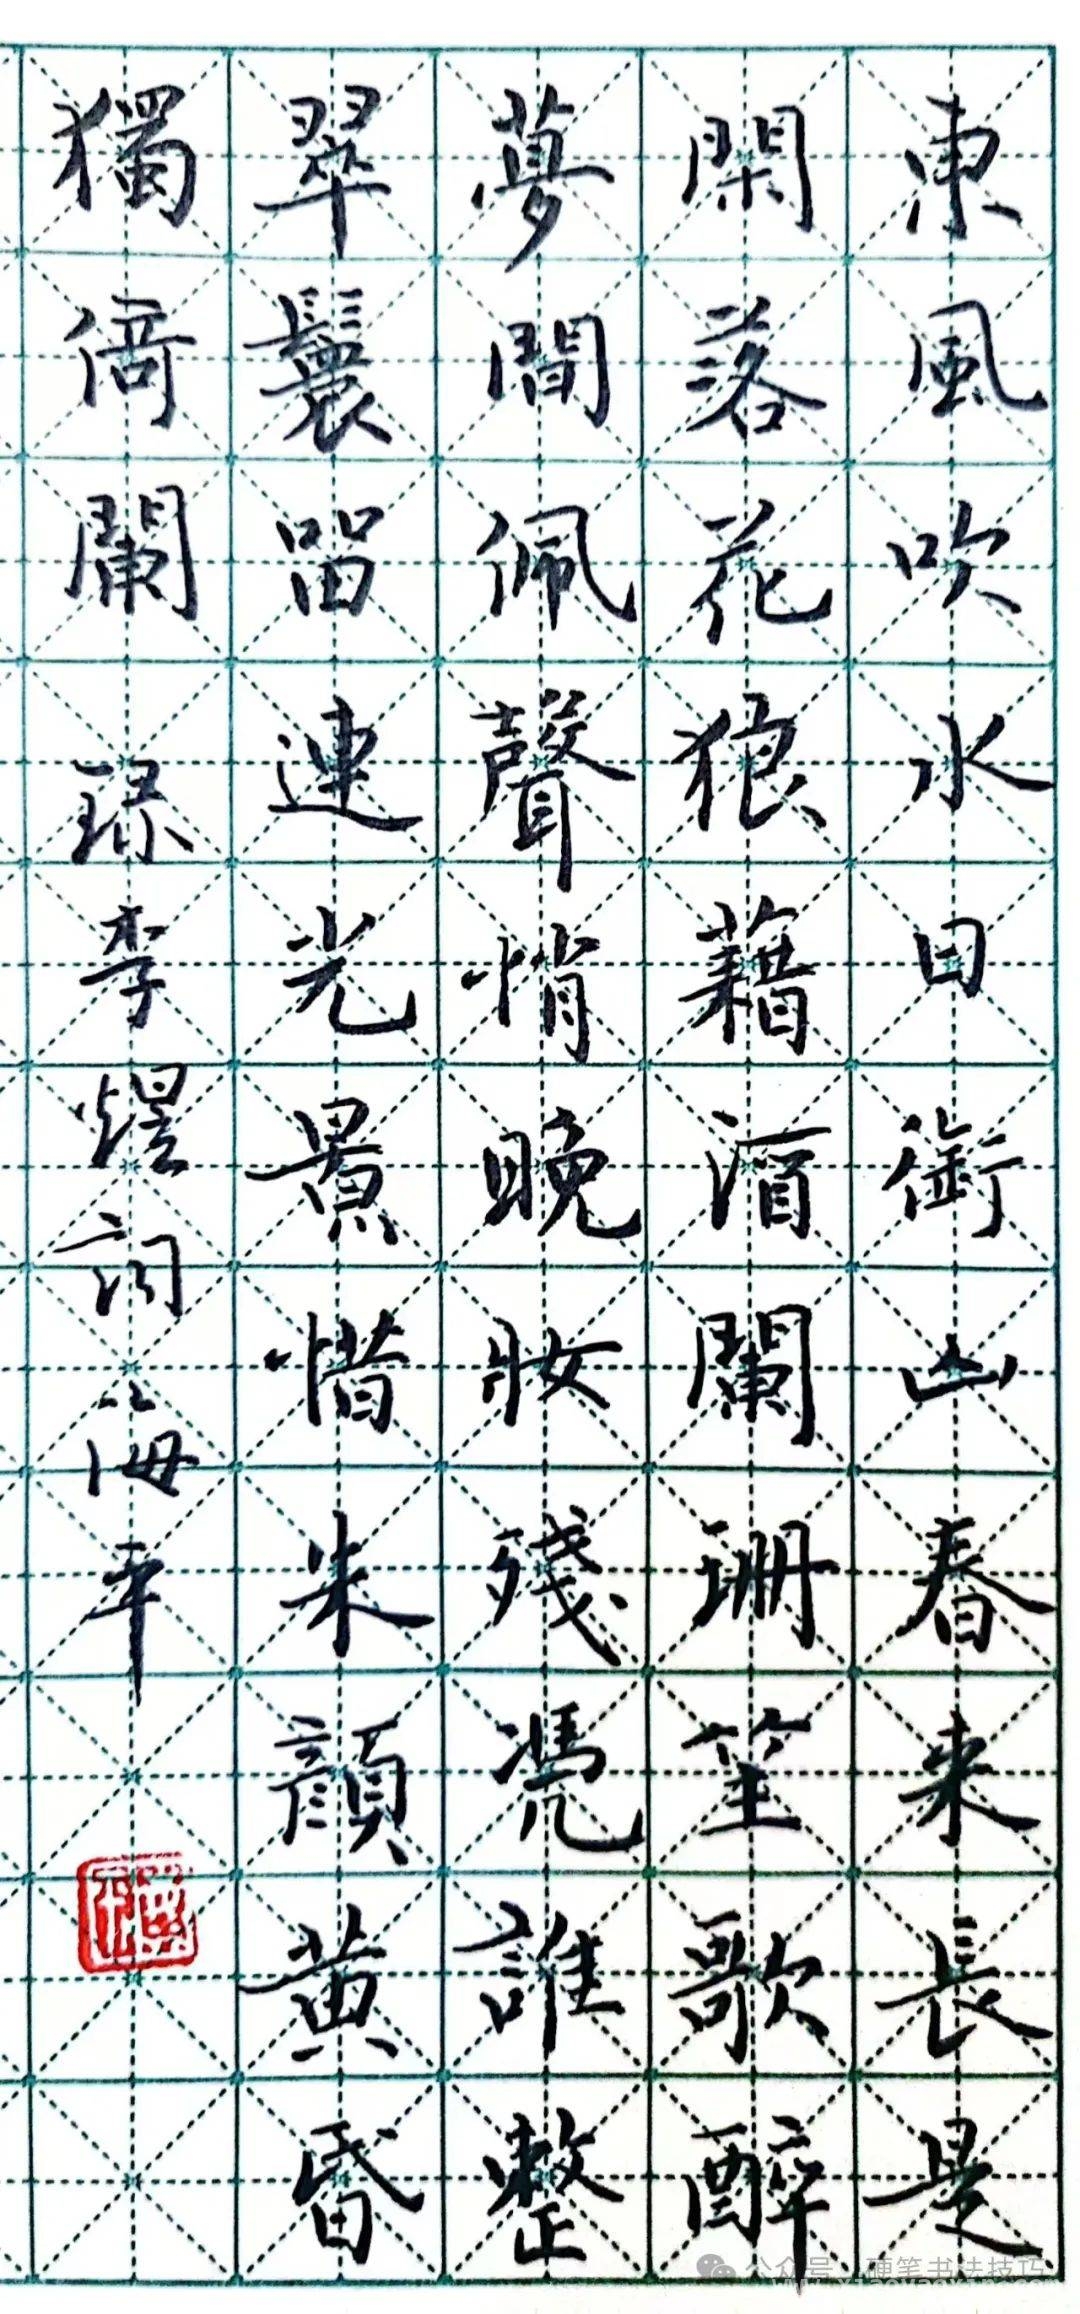 東風吹水日銜山春来長是
閑落花狼藉酒闌珊笙歌醉
夢間佩聲悄晚妝殘憑誰整
翠鬟留連光景惜朱顔黄昏
獨倚闌 臨李煜詞海平
公众号 硬笔书法技巧